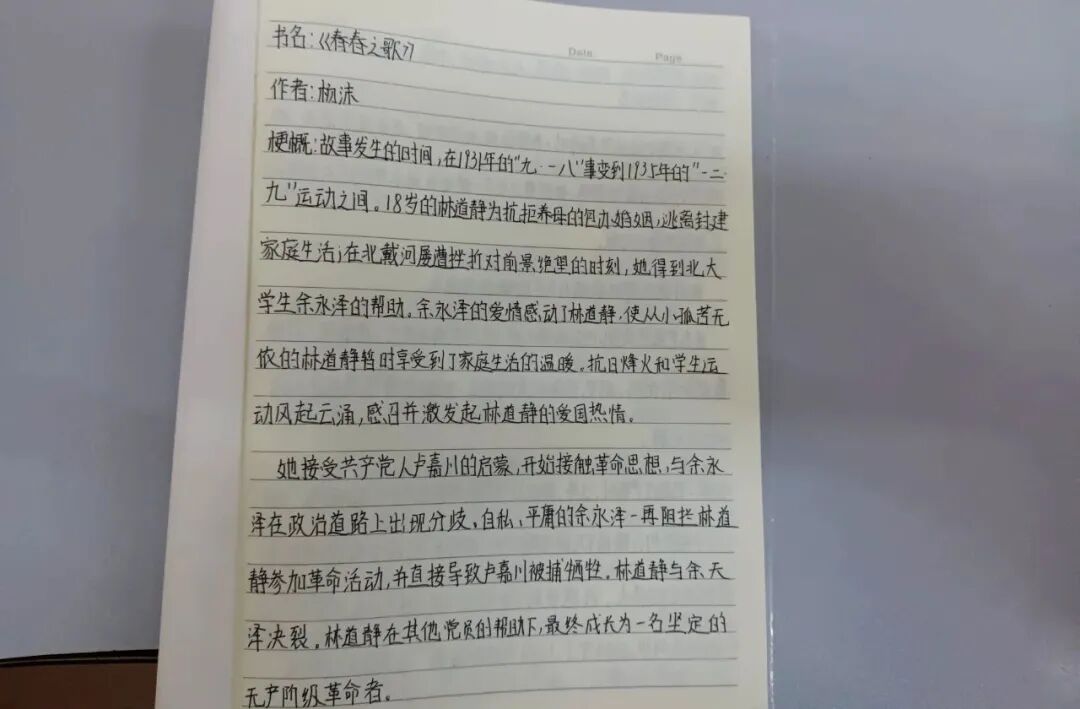 Date Page
书名:《《春春之歌》》
作者:杨沫
梗概:故事发生的时间,在1931年的"九·一八"事变到1935年的"一二·
九"运动之间。18岁的林道静为抗拒养母的包办婚姻,逃离封建
家庭生活;在北戴河屡遭挫折对前景绝望的时刻,她得到北大
学生余永泽的帮助。余永泽的爱情感动了林道静,使从小孤苦无
依的林道静暂时享受到了家庭生活的温暖。抗日烽火和学生运
动风起云涌,感召并激发起林道静的爱国热情。
她接受共产党人卢嘉川的启蒙,开始接触革命思想,与余永
泽在政治道路上出现分歧。自私、平庸的余永泽一再阻拦林道
静参加革命活动,并直接导致卢嘉川被捕牺牲。林道静与余天
泽决裂。林道静在其他党员的帮助下,最终成长为一名坚定的
无产阶级革命者。